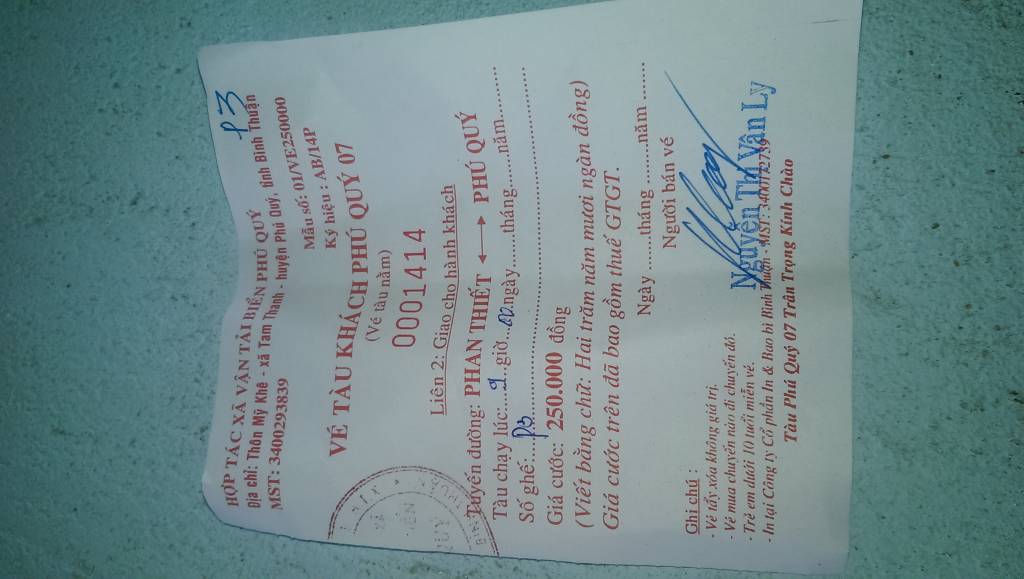 P3
HỢP TÁC XÃ VẬN TẢI BIỂN PHÚ QUÝ
Địa chỉ: Thôn Mỹ Khê - xã Tam Thanh - huyện Phú Quý, tỉnh Bình Thuận
MST: 3400293839
Mẫu số: 01/VE250000
Ký hiệu : AB/14P
VÉ TÀU KHÁCH PHÚ QUÝ 07
(Vé tàu nằm)
0001414
Liên 2: Giao cho hành khách
Tuyến đường: PHAN THIẾT ←→ PHÚ QUÝ
Tàu chạy lúc....giờ....ngày......tháng......năm.........
Số ghế:...P3
Giá cước: 250.000 đồng
(Viết bằng chữ: Hai trăm năm mươi ngàn đồng)
Giá cước trên đã bao gồm thuế GTGT.
Ngày ......tháng ........năm ......
Người bán vé
Nguyễn Thị Vân Ly
Ghi chú :
- Vé tẩy xóa không giá trị.
- Vé mua chuyến nào đi chuyến đó.
- Trẻ em dưới 10 tuổi miễn vé.
- In tại Công ty Cổ phần In & Bao bì Bình Thuận - MST:
Tàu Phú Quý 07 Trân Trọng Kính Chào